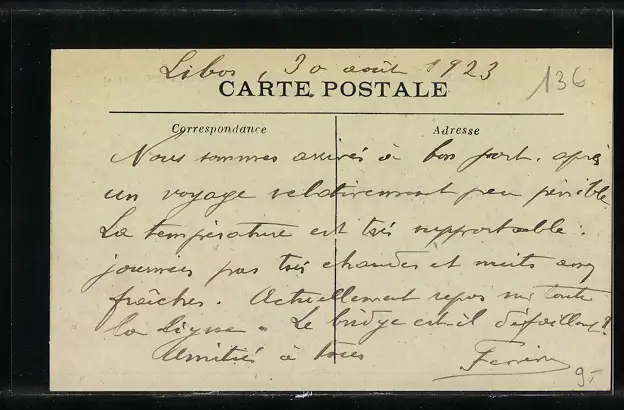 Libos, 30 août 1923
136
CARTE POSTALE
Correspondance
Adresse
Nous sommes arrivés à bon port, après
un voyage relativement peu pénible.
La température est très supportable :
journées pas très chaudes et nuits assez
fraîches. Actuellement repos sur toute
la ligne. Le bridge est-il défaillant ?
Amitiés à tous
9-